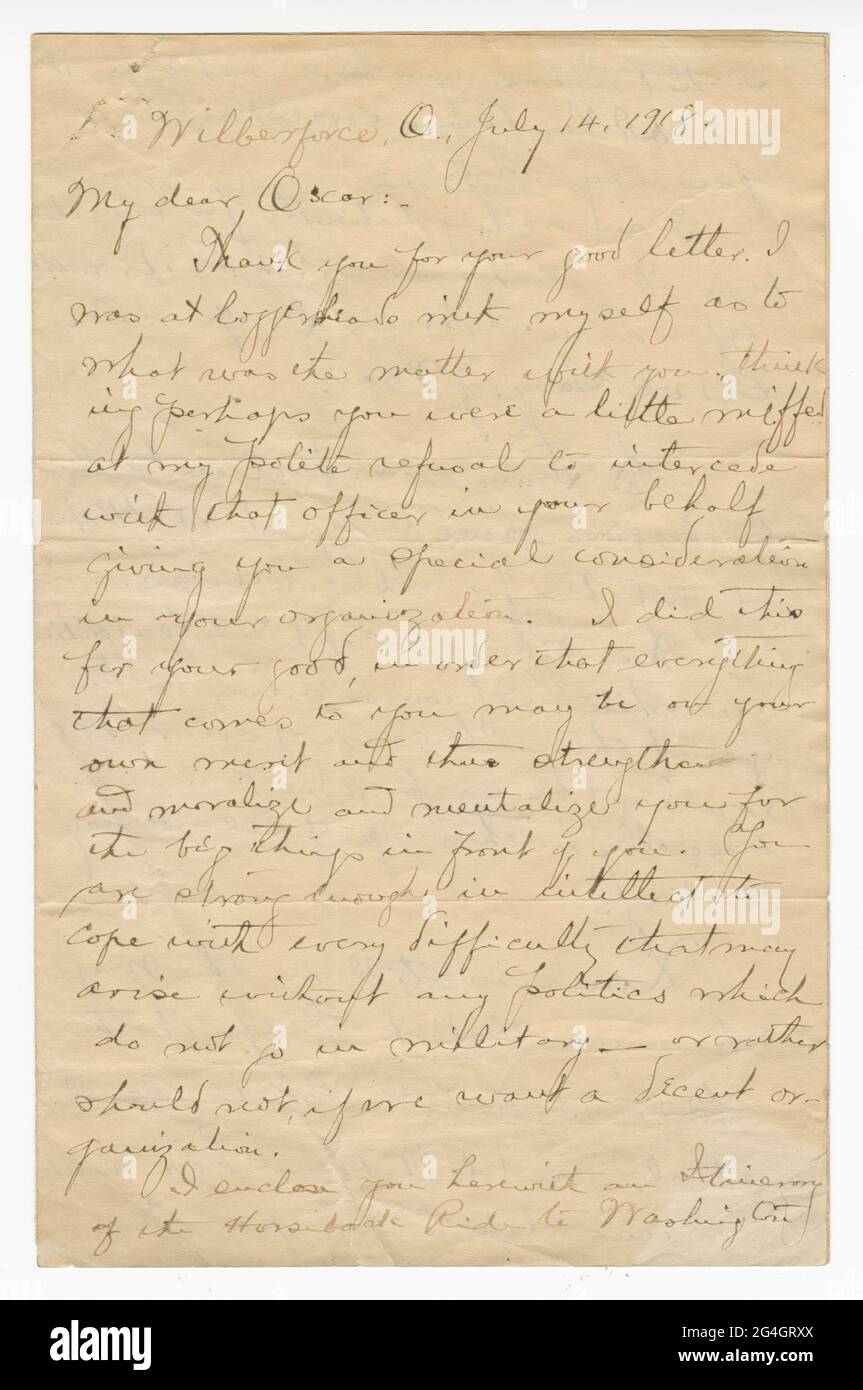 Wilberforce, O., July 14, 1918.
My dear Oscar:-
Thank you for your good letter. I
was at loggerheads with myself as to
what was the matter with you, think
ing perhaps you were a little miffed
at my polite refusal to intercede
with that officer in your behalf
giving you a special consideration
in your organization. I did this
for your good, in order that everything
that comes to you may be on your
own merit and thus strengthen
and moralize and mentalize you for
the big things in front of you. You
are strong enough in intellect to
cope with every difficulty that may
arise without any politics which
do not go in military — or rather
should not, if we want a decent or-
ganization.
I enclose you herewith an Itinerary
of the Horseback Ride to Washington
alamy
Image ID: 2G4GRXX
www.alamy.com